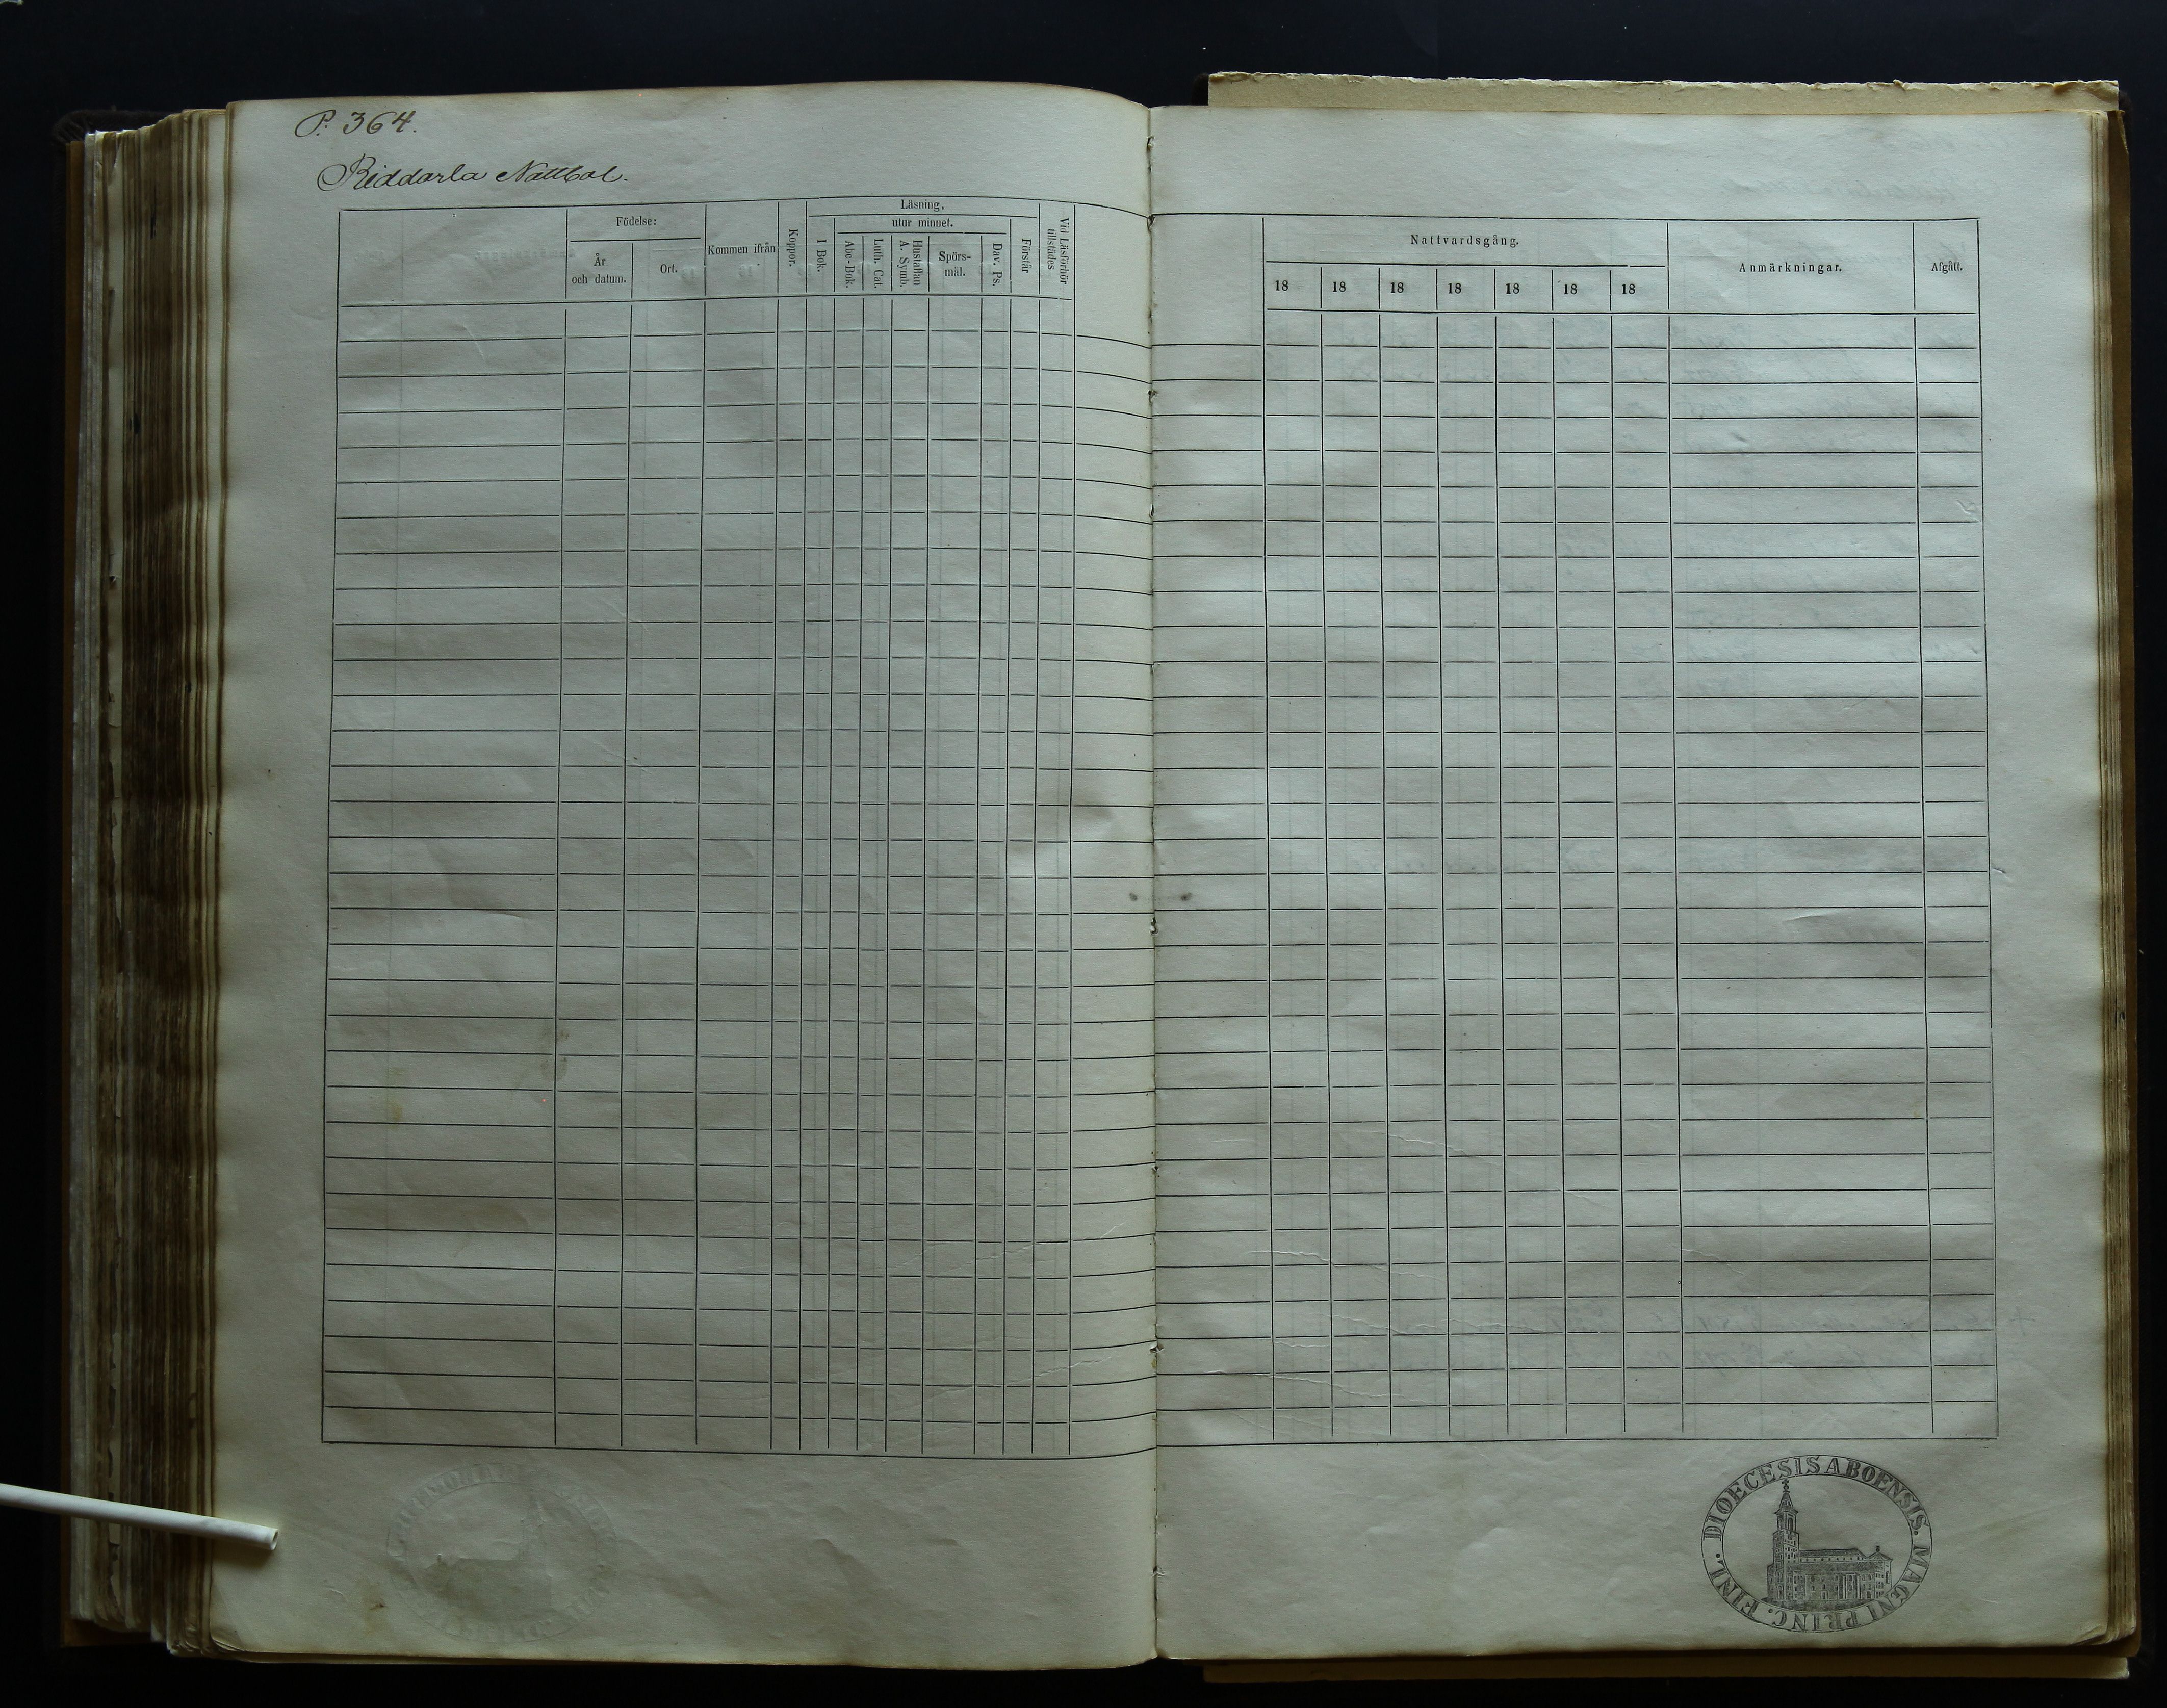 P. 364.
Riddarla Nättbol.
Födelse:
År
och datum.
Ort.
Kommen ifrån
Koppor.
Läsning,
I Bok.
utur minnet.
Abc-Bok.
Luth. Cat.
Hustaflan
A. Symb.
Spörs-
mål.
Dav. Ps.
Förstår
Vid Läsförhör
tillstädes
Nattvardsgång.
18 18 18 18 18 18 18
Anmärkningar.
Afgått.
DIOECESIS ABOENSIS. MAGNI PRINC. FINL.